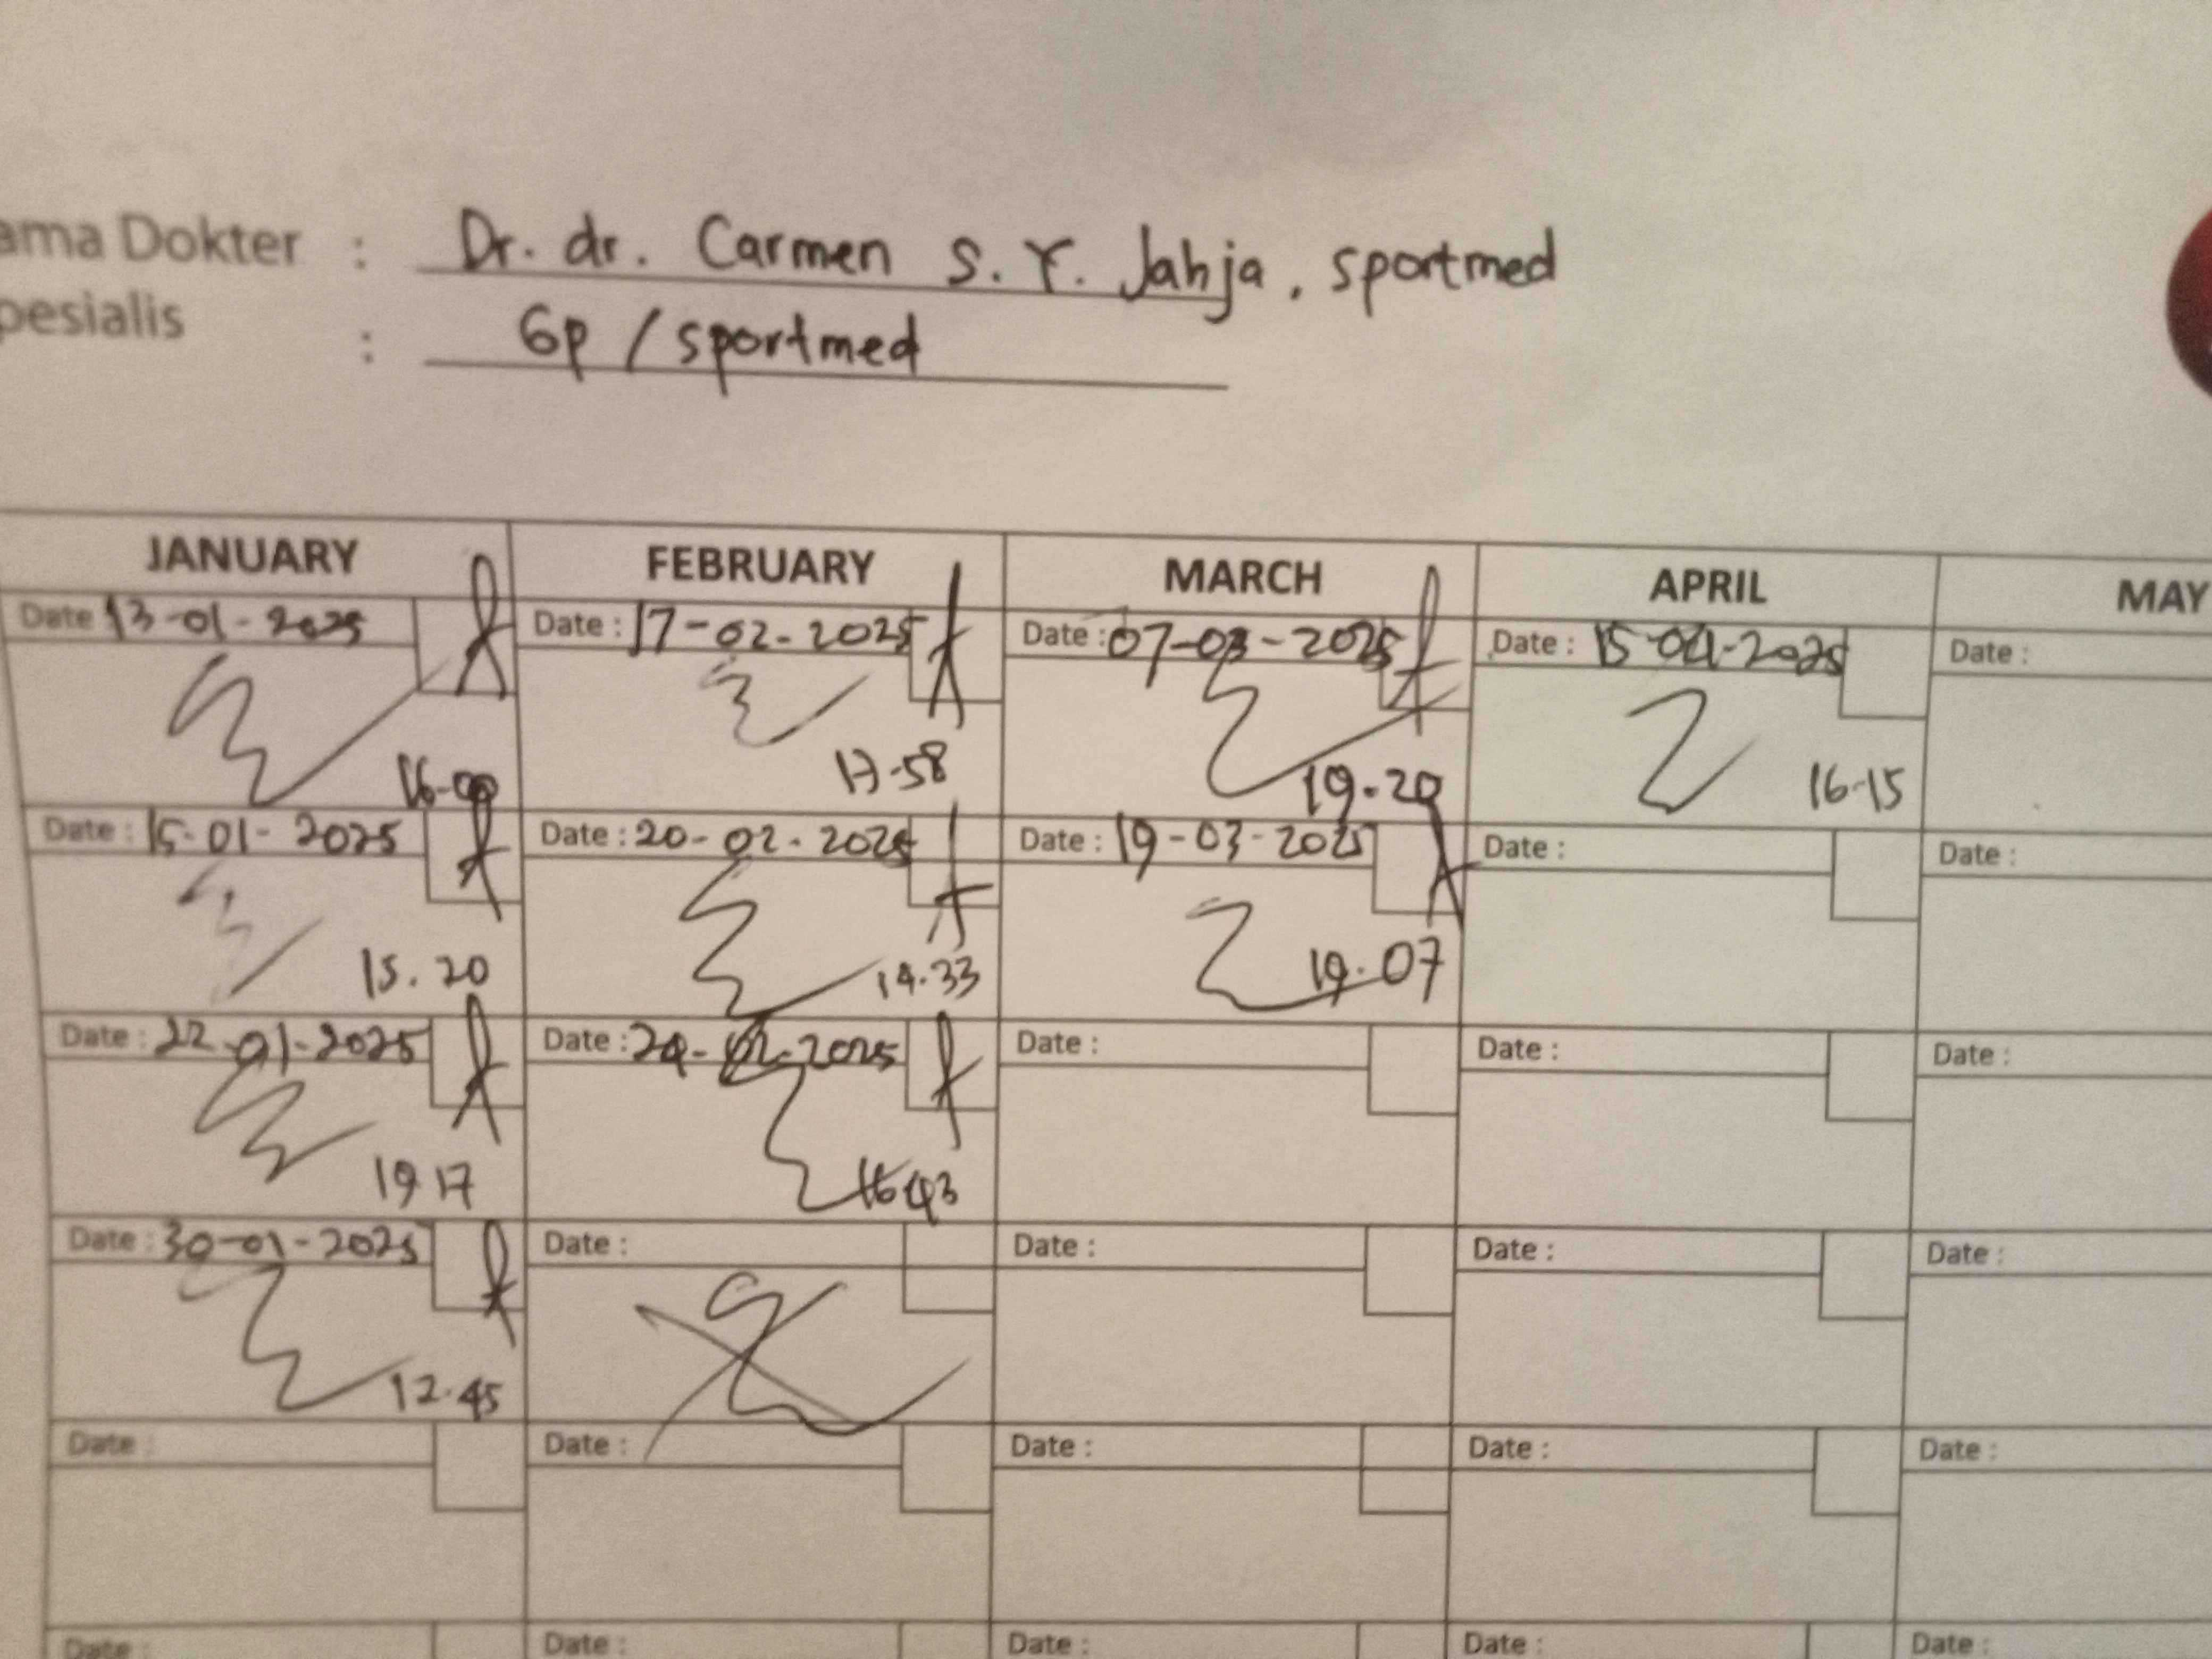 ama Dokter : Dr. dr. Carmen S. Y. Jahja, sportmed
pesialis : Gp / sportmed
JANUARY FEBRUARY MARCH APRIL MAY
Date 13-01-2025 Date : 17-02-2025 Date : 07-03-2025 Date : 15-04-2025 Date :
16-00 17-58 19-20 16-15
Date : 15-01-2025 Date : 20-02-2025 Date : 19-03-2025 Date : Date :
15.20 14.33 19.07
Date : 22-01-2025 Date : 24-02-2025 Date : Date : Date :
19 17 16 43
Date : 30-01-2025 Date : Date : Date : Date :
12.45
Date : Date : Date : Date : Date :
Date : Date : Date : Date : Date :